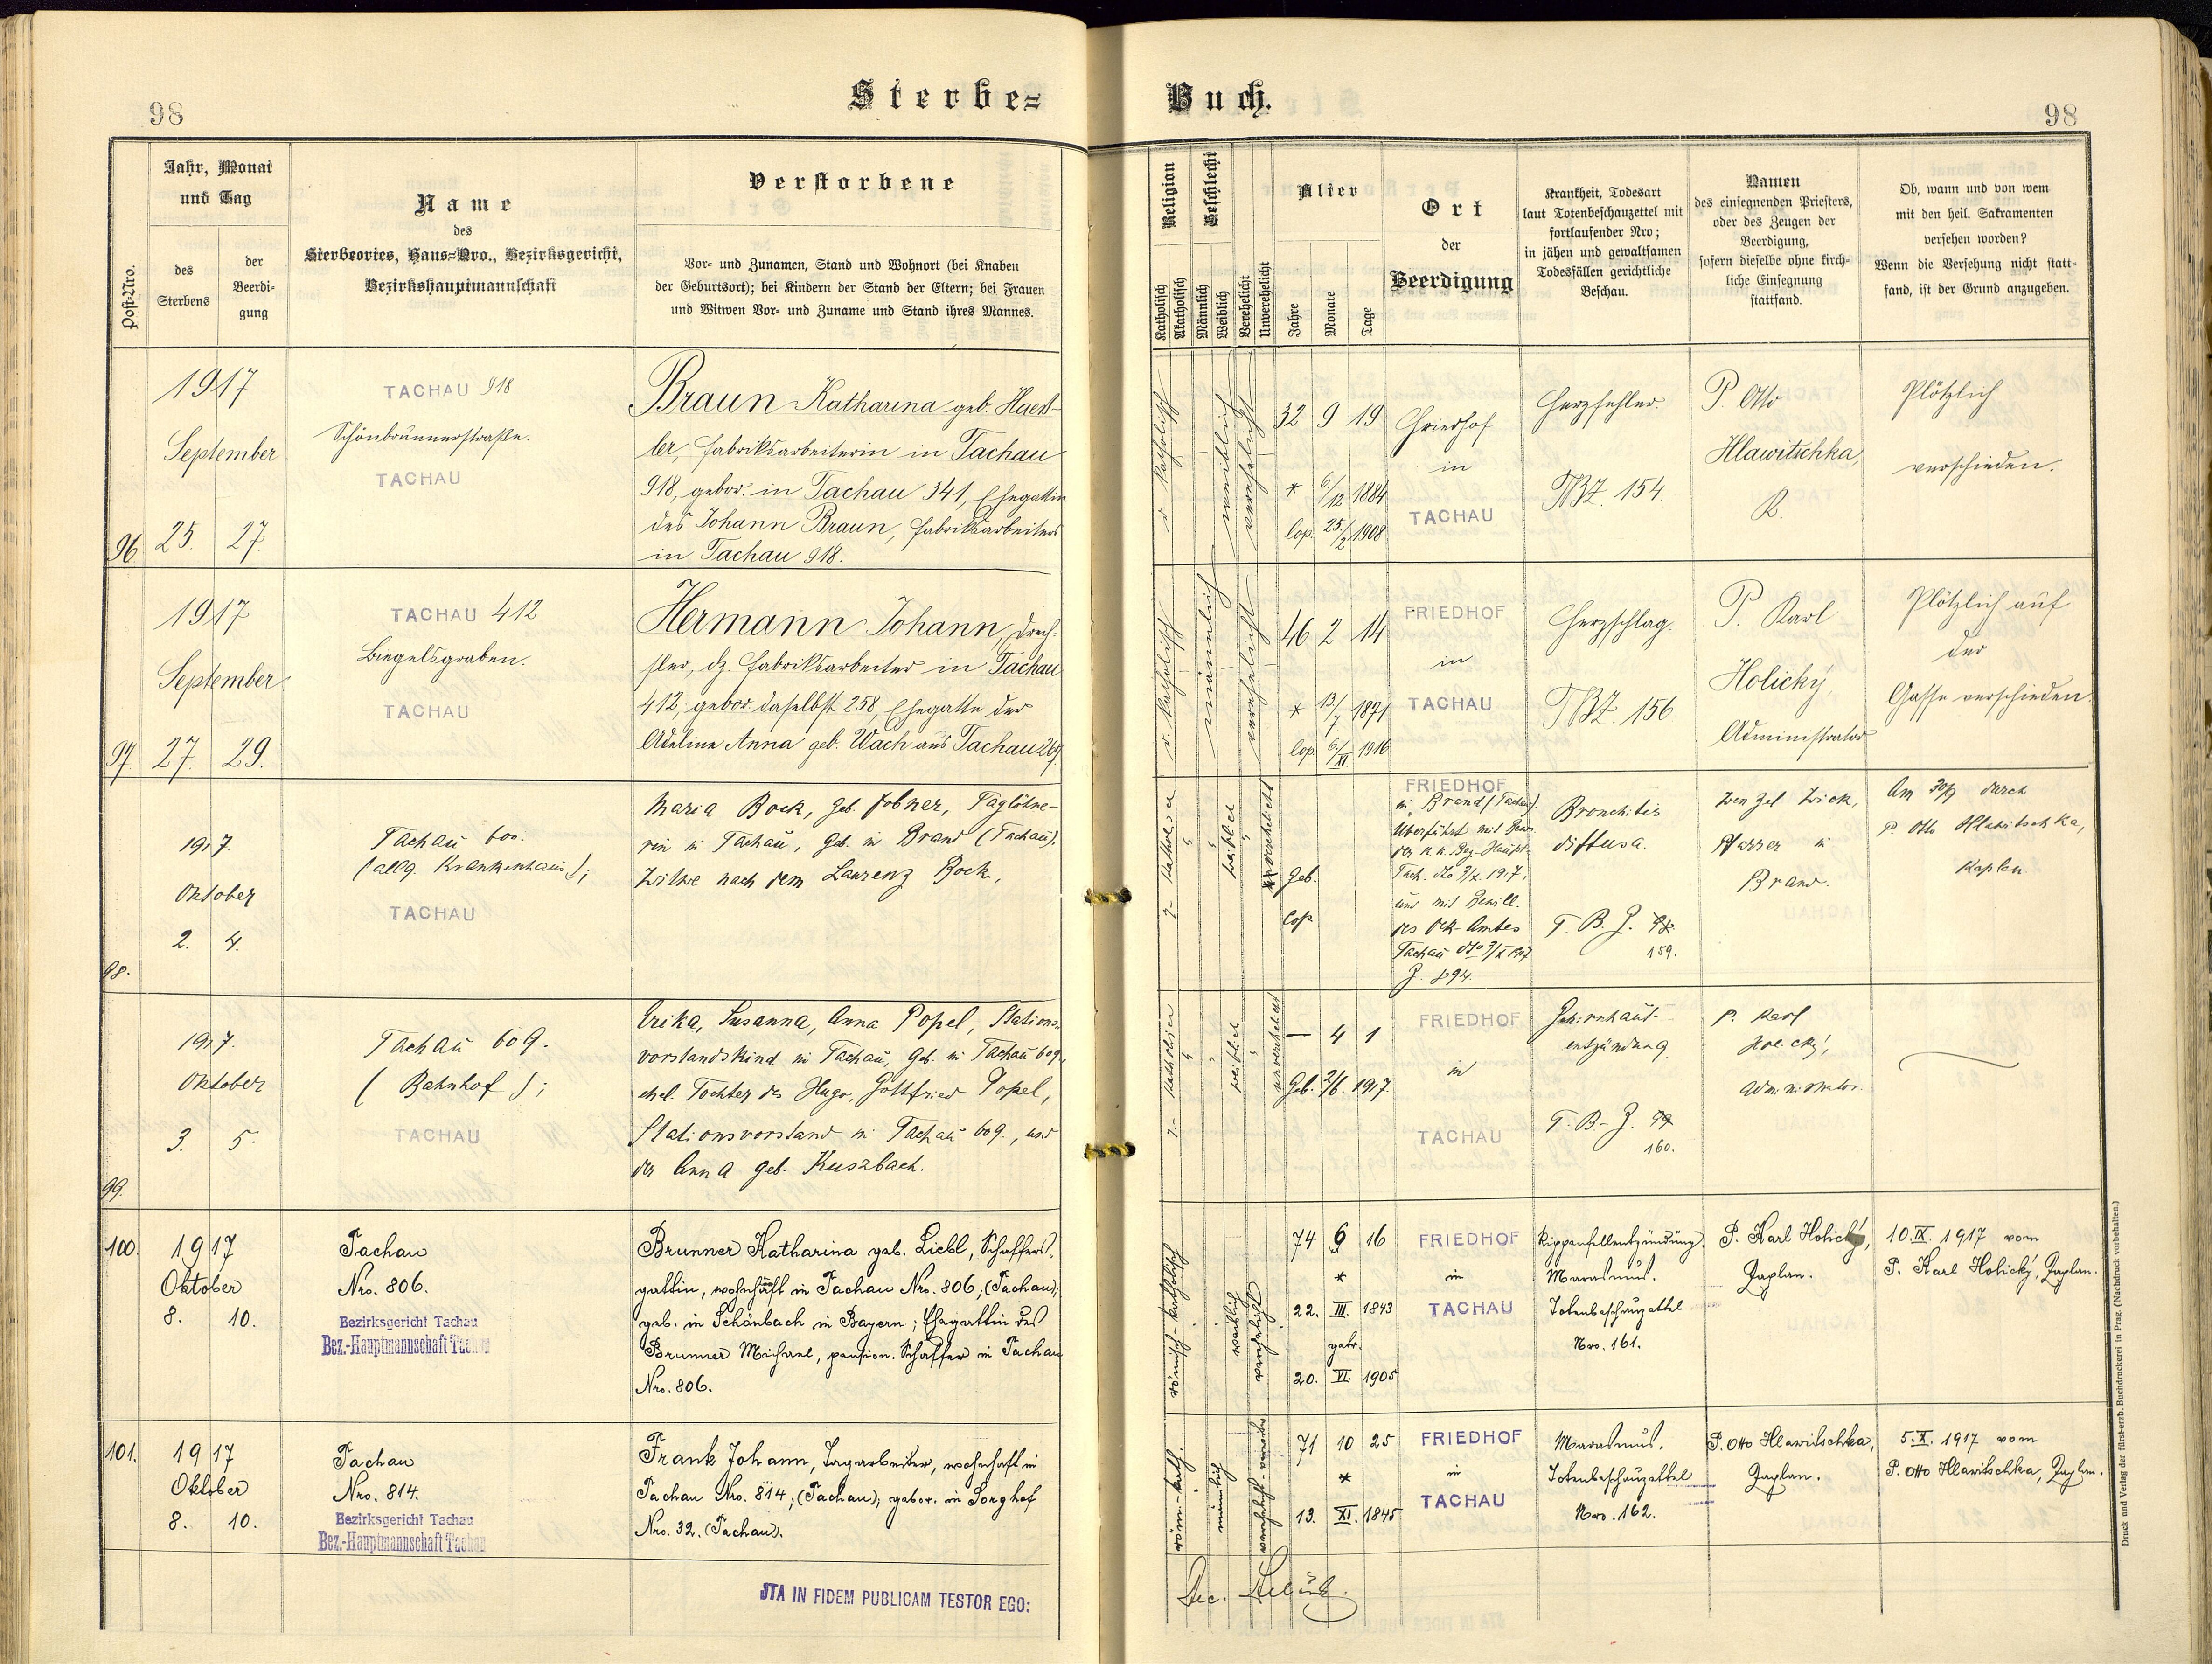 98
Sterbe=
Buch.
98
Post-Nro.
Jahr, Monat
und Tag
des
Sterbens
der
Beerdi-
gung
Name
des
Sterbeortes, Haus=Nro., Bezirksgericht,
Bezirkshauptmannschaft
Verstorbene
Vor- und Zunamen, Stand und Wohnort (bei Knaben
der Geburtsort); bei Kindern der Stand der Eltern; bei Frauen
und Witwen Vor- und Zuname und Stand ihres Mannes.
Religion
Katholisch
Akatholisch
Geschlecht
Männlich
Weiblich
Verehelicht
Unverehelicht
Alter
Jahre
Monate
Tage
Ort
der
Beerdigung
Krankheit, Todesart
laut Totenbeschauzettel mit
fortlaufender Nro;
in jähen und gewaltsamen
Todesfällen gerichtliche
Beschau.
Namen
des einsegnenden Priesters,
oder des Zeugen der
Beerdigung,
sofern dieselbe ohne kirch-
liche Einsegnung
stattfand.
Ob, wann und von wem
mit den heil. Sakramenten
versehen worden?
Wenn die Versehung nicht statt-
fand, ist der Grund anzugeben.
96
1917
September
25. 27.
TACHAU 918
Schönbrunnerstraße.
TACHAU
Braun Katharina geb. Haen-
ler, Fabriksarbeiterin in Tachau
918, gebor. in Tachau 341, Ehegattin
des Johann Braun, Fabriksarbeiters
in Tachau 918.
r. katholisch
weiblich
verehelicht
32 9 19
* 6/12 1884
Cop. 25./2 1908
Friedhof
in
TACHAU
Herzfehler.
TBZ. 154
P. Otto
Hlawitschka,
K.
Plötzlich
verschieden.
97.
1917
September
27. 29.
TACHAU 412
Biegelsgraben.
TACHAU
Hermann Johann, Drech-
sler, dz. Fabriksarbeiter in Tachau
412, gebor. daselbst 258, Ehegatte der
Adeline Anna geb. Wach aus Tachau 269
r. katholisch
männlich
verehelicht
46 2 14
* 13/7 1871
Cop. 6./XI. 1916
FRIEDHOF
in
TACHAU
Herzschlag.
TBZ. 156
P. Karl
Holický,
Administrator
Plötzlich auf
der
Gasse verschieden.
98.
1917.
Oktober
2. 4.
Tachau 600.
(allg. Krankenhaus);
TACHAU
Maria Bock, geb. Fobner, Taglöhne-
rin in Tachau, geb. in Brand (Tachau).
Witwe nach dem Laurenz Bock,
r.- katholisch
weiblich
verehelicht
Geb.
Cop.
FRIEDHOF
in Brand (Tachau).
Überführt mit Bew.
der k. k. Bez-Haupt.
Tach. dto 3/X. 1917.
und mit Bewill.
des Dek-Amtes
Tachau dto 3/X 1917
Z. 894.
Bronchitis
diffusa.
T. B. Z.
159.
Wenzel Wick,
Pfarrer in
Brand.
Am 30/9 durch
P. Otto Hlawitschka,
Kaplan
99.
1917.
Oktober
3. 5.
Tachau 609.
(Bahnhof);
TACHAU
Erika, Susanna, Anna Popel, Stations-
vorstandskind in Tachau, geb. in Tachau 609.,
ehel. Tochter des Hugo, Gottfried Popel,
Stationsvorstand in Tachau 609., und
der Anna geb. Kuszbach.
r.- katholisch
weiblich
unverehelicht
— 4 1
Geb. 2/6. 1917.
FRIEDHOF
in
TACHAU
Gehirnhaut-
entzündung
T. B.- Z.
160.
P. Karl
Holický,
Administrator.
100.
1917
Oktober
8. 10.
Tachau
Nro. 806.
Bezirksgericht Tachau
Bez.-Hauptmannschaft Tachau
Brunner Katharina geb. Liebl, Schaffers-
gattin, wohnhaft in Tachau Nro. 806, (Tachau);
geb. in Schönbach in Bayern; Ehegattin des
Brunner Michael, pension. Schaffer in Tachau
Nro. 806.
römisch-katholisch
weiblich
verehelicht
74 6 16
*
22. III. 1843
getr.
20. VI. 1905
FRIEDHOF
in
TACHAU
Rippenfellentzündung.
Marasmus.
Totenbeschauzettel
Nro. 161.
P. Karl Holický,
Kaplan.
10. IX. 1917 vom
P. Karl Holický, Kaplan.
101.
1917
Oktober
8. 10.
Tachau
Nro. 814.
Bezirksgericht Tachau
Bez.-Hauptmannschaft Tachau
Frank Johann, Tagarbeiter, wohnhaft in
Tachau Nro. 814; (Tachau); gebor. in Sorghof
Nro. 32. (Tachau).
röm.-kath.
männlich
71 10 25
*
13. XI. 1845
FRIEDHOF
in
TACHAU
Marasmus.
Totenbeschauzettel
Nro. 162.
P. Otto Hlawitschka,
Kaplan.
5. X. 1917 vom
P. Otto Hlawitschka, Kaplan.
ITA IN FIDEM PUBLICAM TESTOR EGO:
Druck und Verlag der fürst-erzb. Buchdruckerei in Prag. (Nachdruck vorbehalten.)